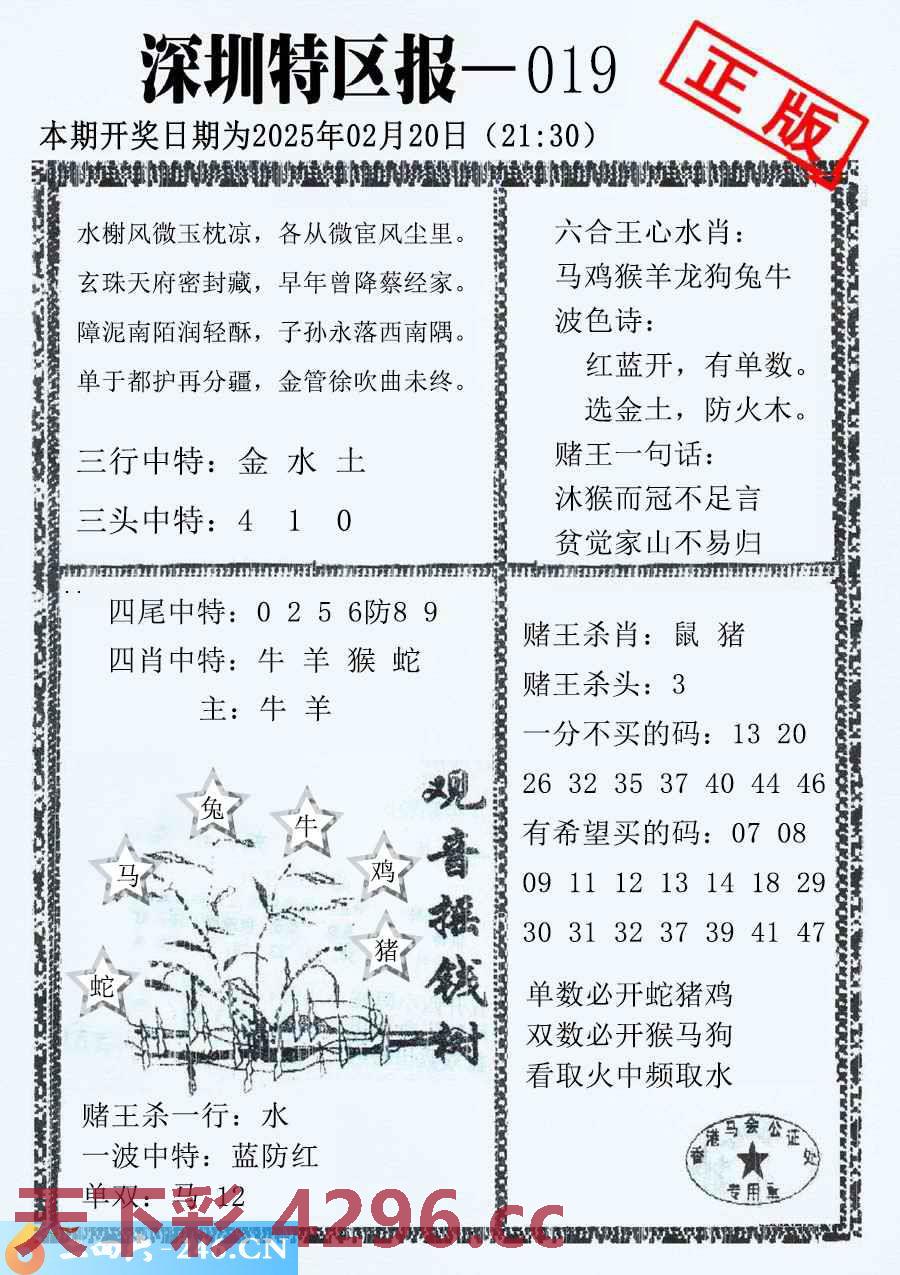 深圳特区报—019
正版
本期开奖日期为2025年02月20日（21:30）
水榭风微玉枕凉，各从微宦风尘里。
玄珠天府密封藏，早年曾降蔡经家。
障泥南陌润轻酥，子孙永落西南隅。
单于都护再分疆，金管徐吹曲未终。
三行中特：金 水 土
三头中特：4 1 0
六合王心水肖：
马鸡猴羊龙狗兔牛
波色诗：
红蓝开，有单数。
选金土，防火木。
赌王一句话：
沐猴而冠不足言
贫觉家山不易归
四尾中特：0 2 5 6防8 9
四肖中特：牛 羊 猴 蛇
主：牛 羊
观音摇钱树
兔
牛
马
鸡
猪
蛇
赌王杀一行：水
一波中特：蓝防红
单双：马 12
赌王杀肖：鼠 猪
赌王杀头：3
一分不买的码：13 20
26 32 35 37 40 44 46
有希望买的码：07 08
09 11 12 13 14 18 29
30 31 32 37 39 41 47
单数必开蛇猪鸡
双数必开猴马狗
看取火中频取水
香港马会公证处
专用章
天下彩 4296.cc
-246.CN